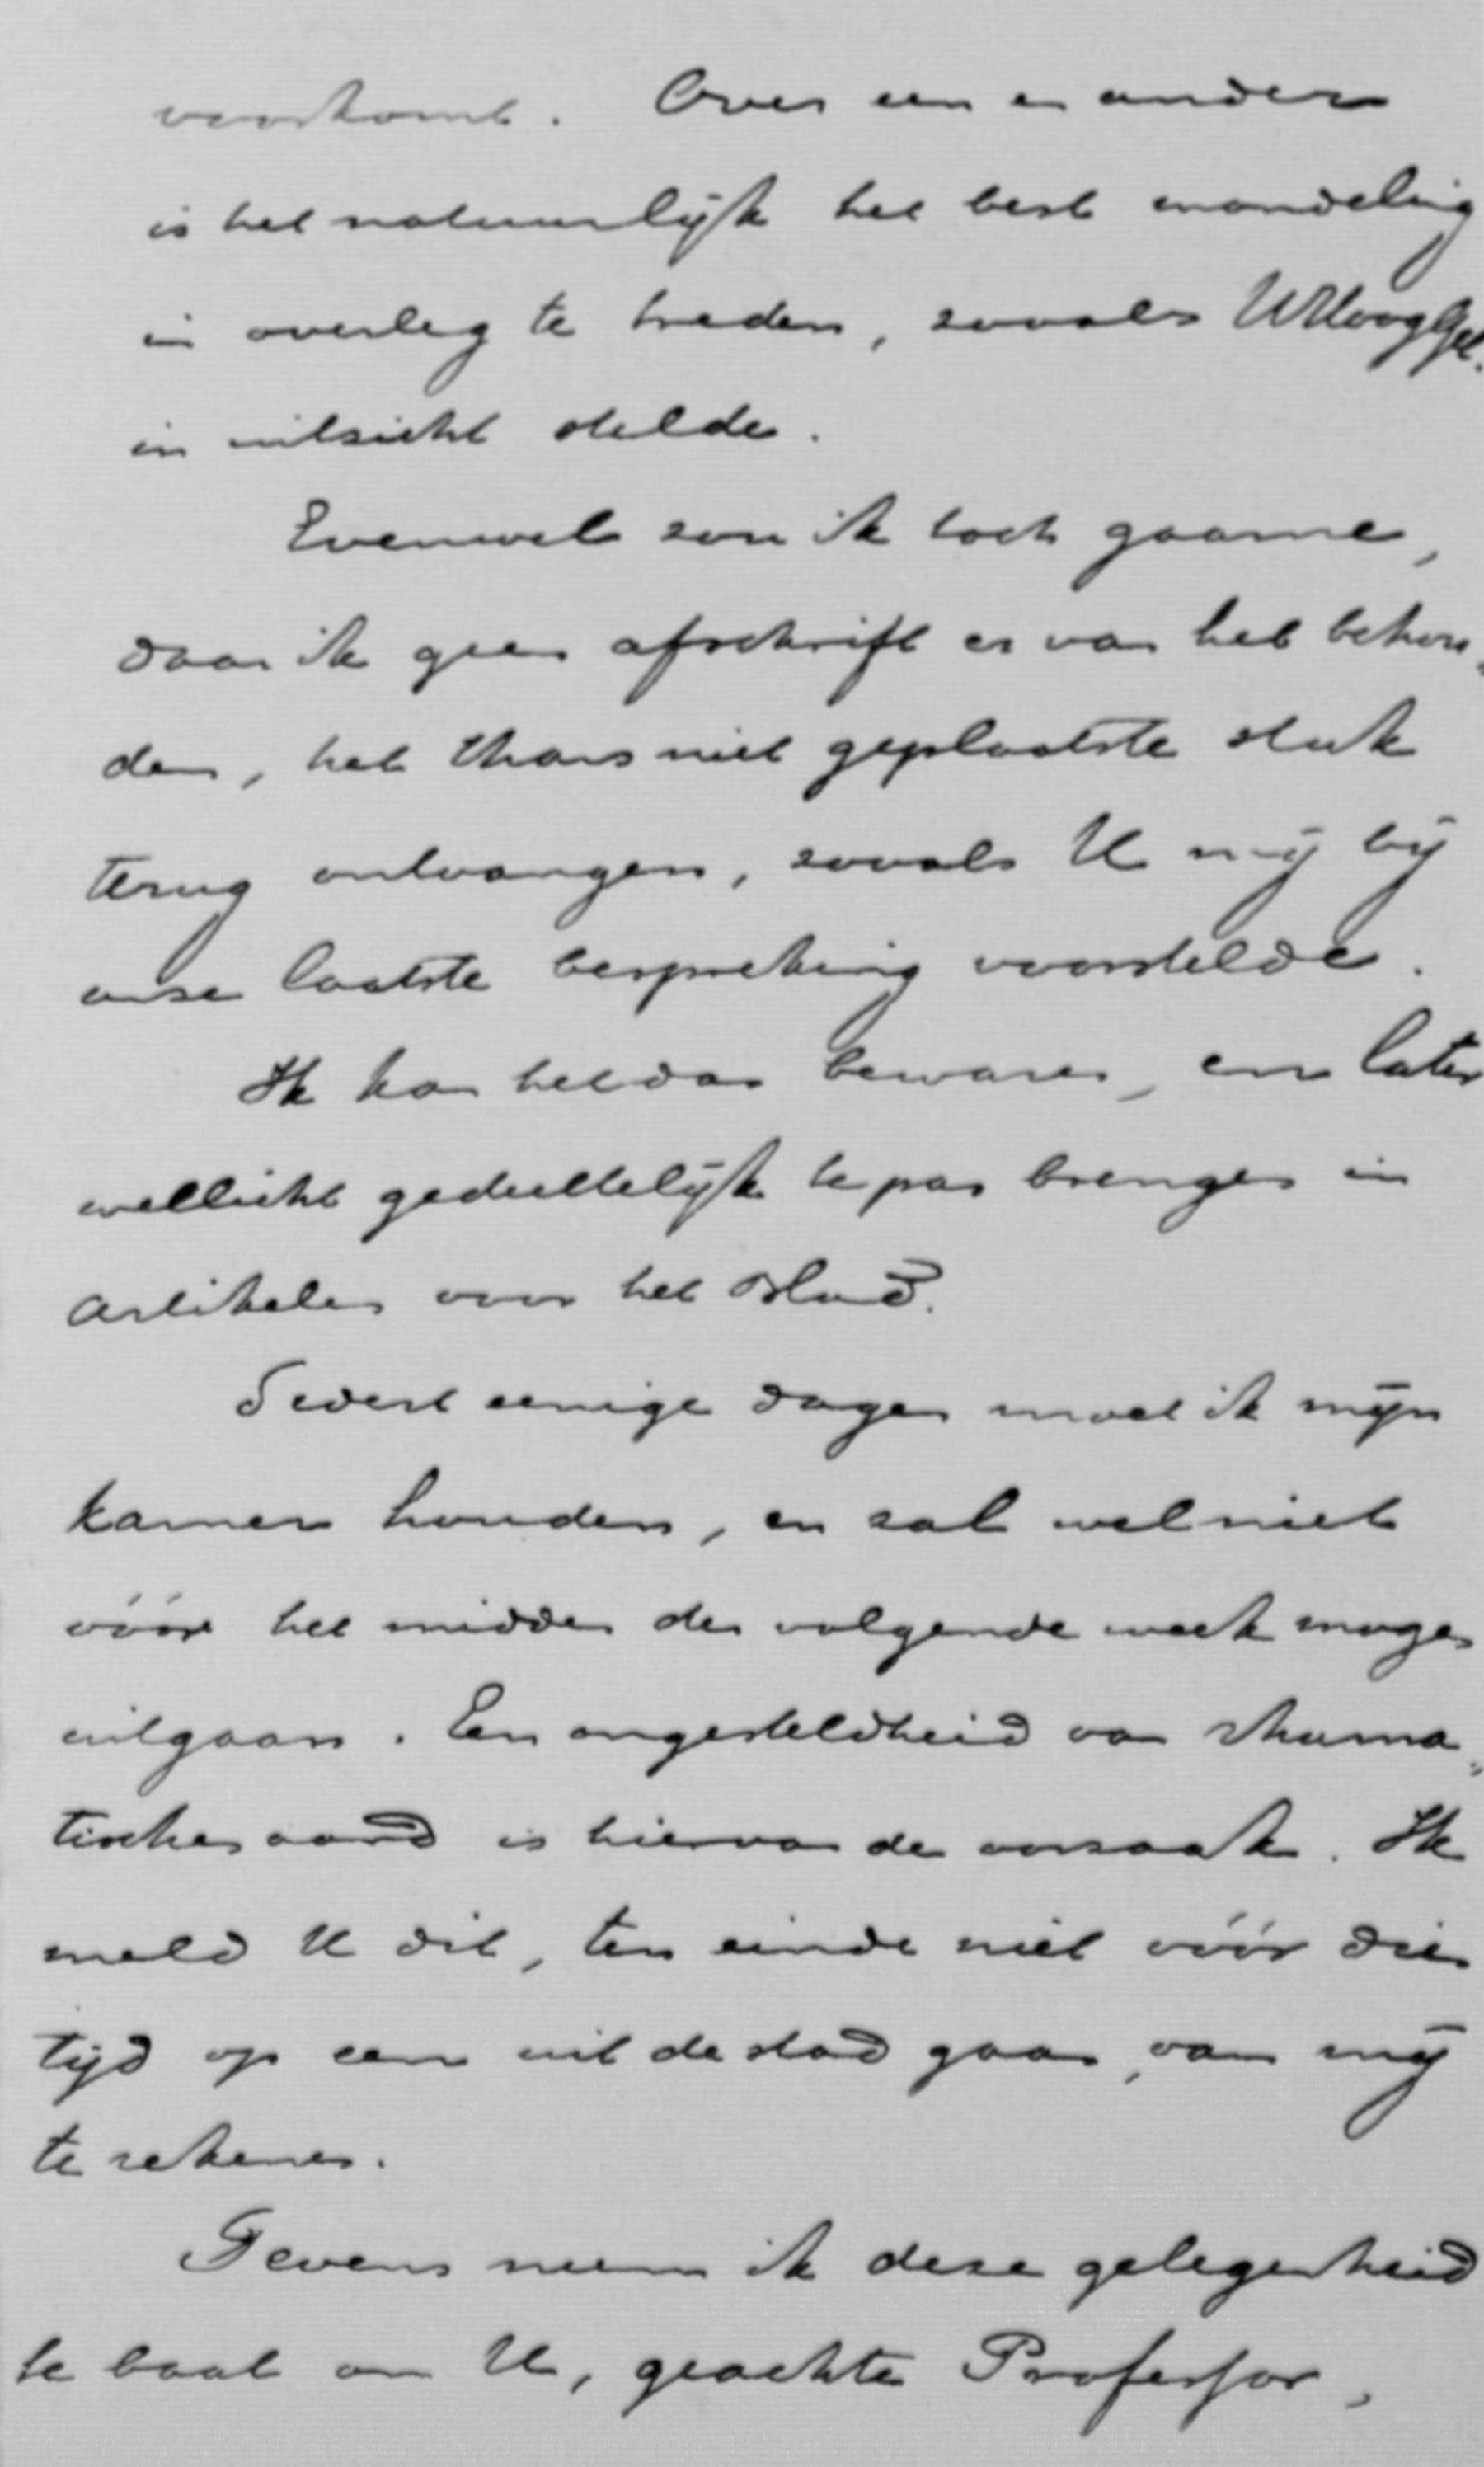 voorkomt. Over een en ander
is het natuurlijk het best mondeling
in overleg te treden, zooals UHoogGel.
in uitzicht stelde.
Evenwel zou ik toch gaarne,
daar ik geen afschrift er van heb behou„
den, het thans niet geplaatste stuk
terug ontvangen, zooals U mij bij
onze laatste bespreking voorstelde.
Ik kan het dan bewaren, en later
wellicht gedeeltelijk te pas brengen in
artikelen voor het blad.
Sedert eenige dagen moet ik mijn
kamer houden, en zal wel niet
vóór het midden der volgende week mogen
uitgaan. Een ongesteldheid van rheuma„
tischen aard is hiervan de oorzaak. Ik
meld U dit, ten einde niet vóór dien
tijd op een uit de stad gaan, van mij
te rekenen.
Tevens neem ik deze gelegenheid
te baat om U, geachte Professor,